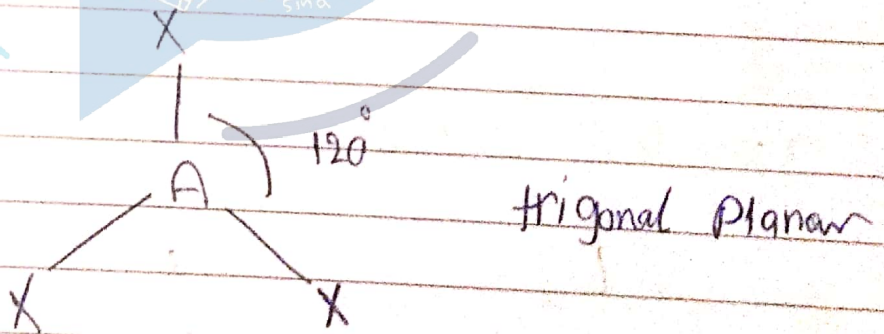 sind
X
120°
A
trigonal Planar
X X